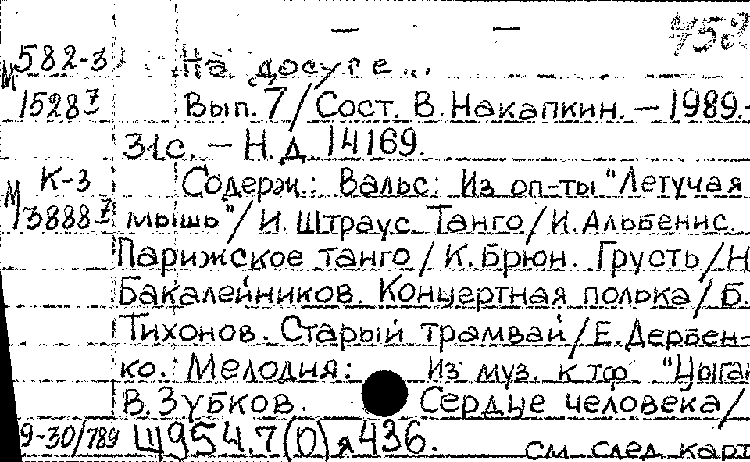 452
582-3 На досуге...
М 15287 Вып. 7/Сост. В. Накапкин. — 1989.
31с. — Н.Д. 14169.
К-3 Содерж.: Вальс: Из оп-ты "Летучая
М 138887 мышь"/И. Штраус. Танго/И. Альбенис
Парижское танго/К. Брюн. Грусть/Н
Бакалейников. Концертная полька/Б.
Тихонов. Старый трамвай/Е. Дербен-
ко. Мелодия: Из муз. к тф "Цыган
В. Зубков. Сердце человека/
9-30/789 Щ954.7(0)я436. см. след. карт